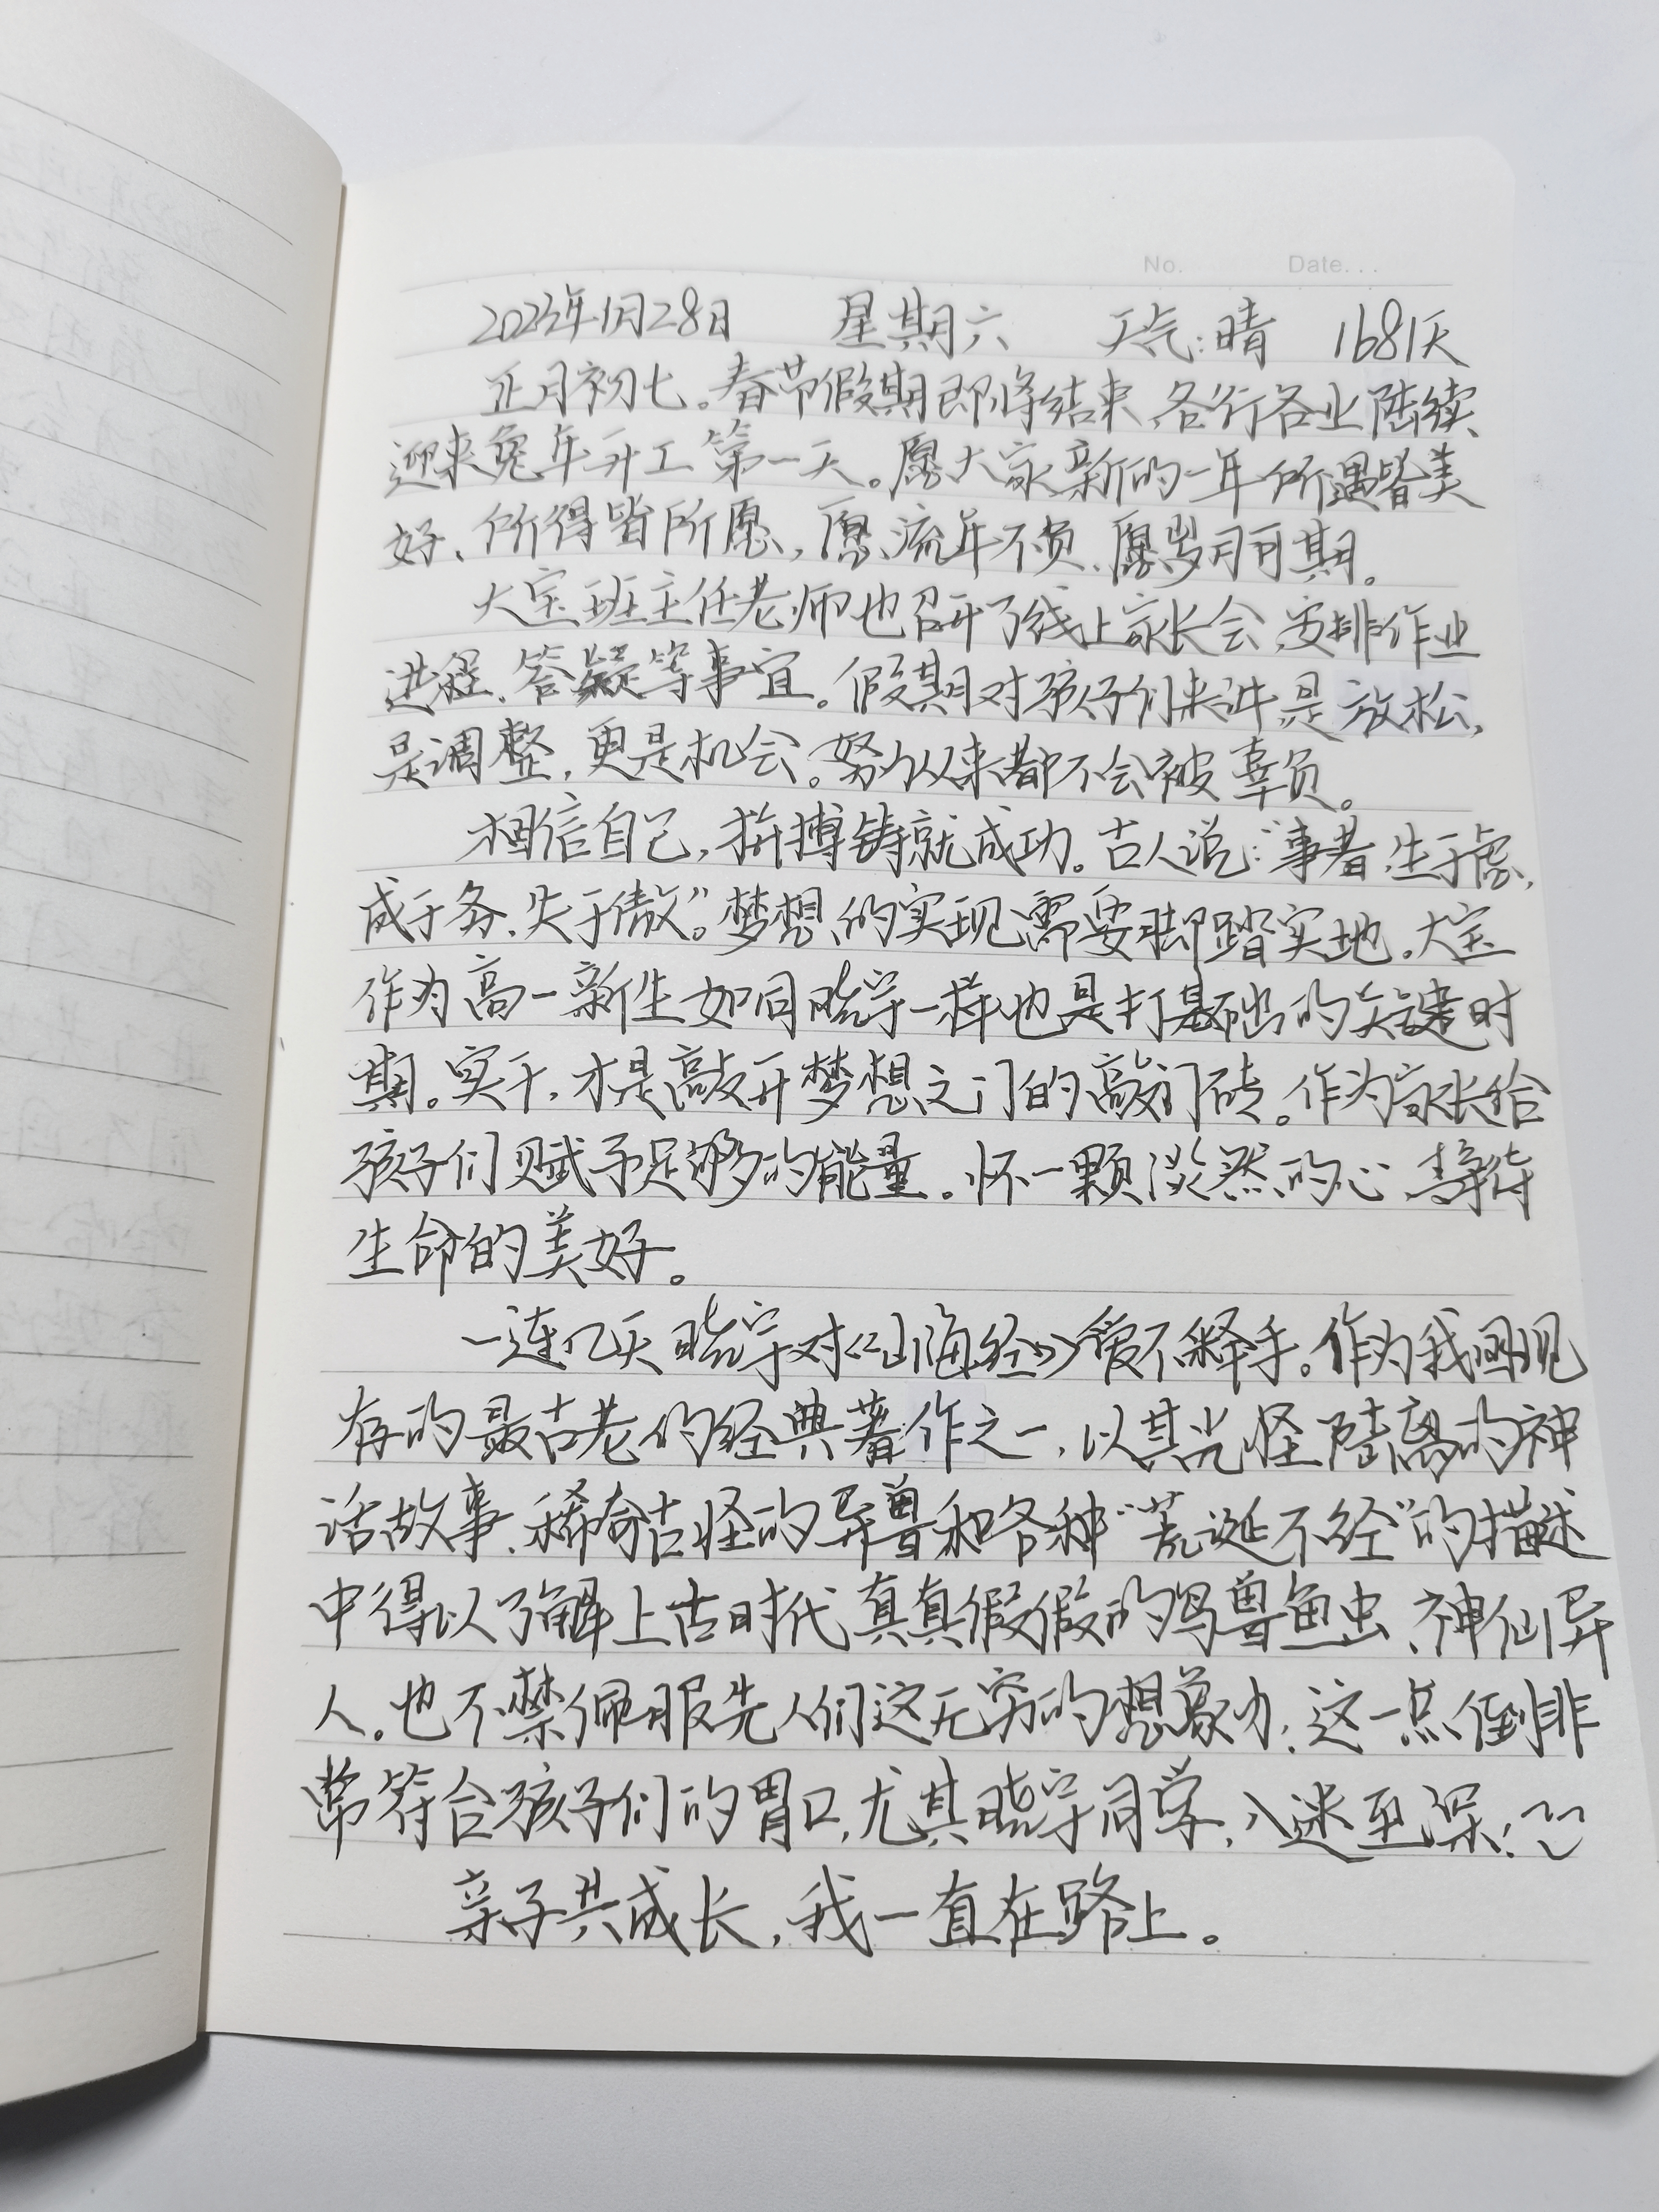 No. Date...
2023年1月28日 星期六 天气:晴 1681天
正月初七。春节假期即将结束,各行各业陆续
迎来兔年开工第一天。愿大家新的一年所遇皆美
好、所得皆所愿,愿流年不负、愿岁月可期。
大宝班主任老师也召开了线上家长会,安排作业
进程、答疑等事宜。假期对孩子们来讲,是放松,
是调整,更是机会。努力从来都不会被辜负。
相信自己,拼搏铸就成功。古人说:“事者,生于虑,
成于务,失于傲”。梦想的实现需要脚踏实地。大宝
作为高一新生如同晓宇一样也是打基础的关键时
期。实干,才是敲开梦想之门的敲门砖。作为家长给
孩子们赋予足够的能量。怀一颗淡然的心,静待
生命的美好。
一连几天晓宇对《山海经》爱不释手。作为我国现
存的最古老的经典著作之一,以其光怪陆离的神
话故事、稀奇古怪的异兽和各种“荒诞不经”的描述
中得以了解上古时代真真假假的鸟兽鱼虫、神仙异
人。也不禁佩服先人们这无穷的想象力,这一点倒非
常符合孩子们的胃口,尤其晓宇同学,入迷至深!
亲子共成长,我一直在路上。